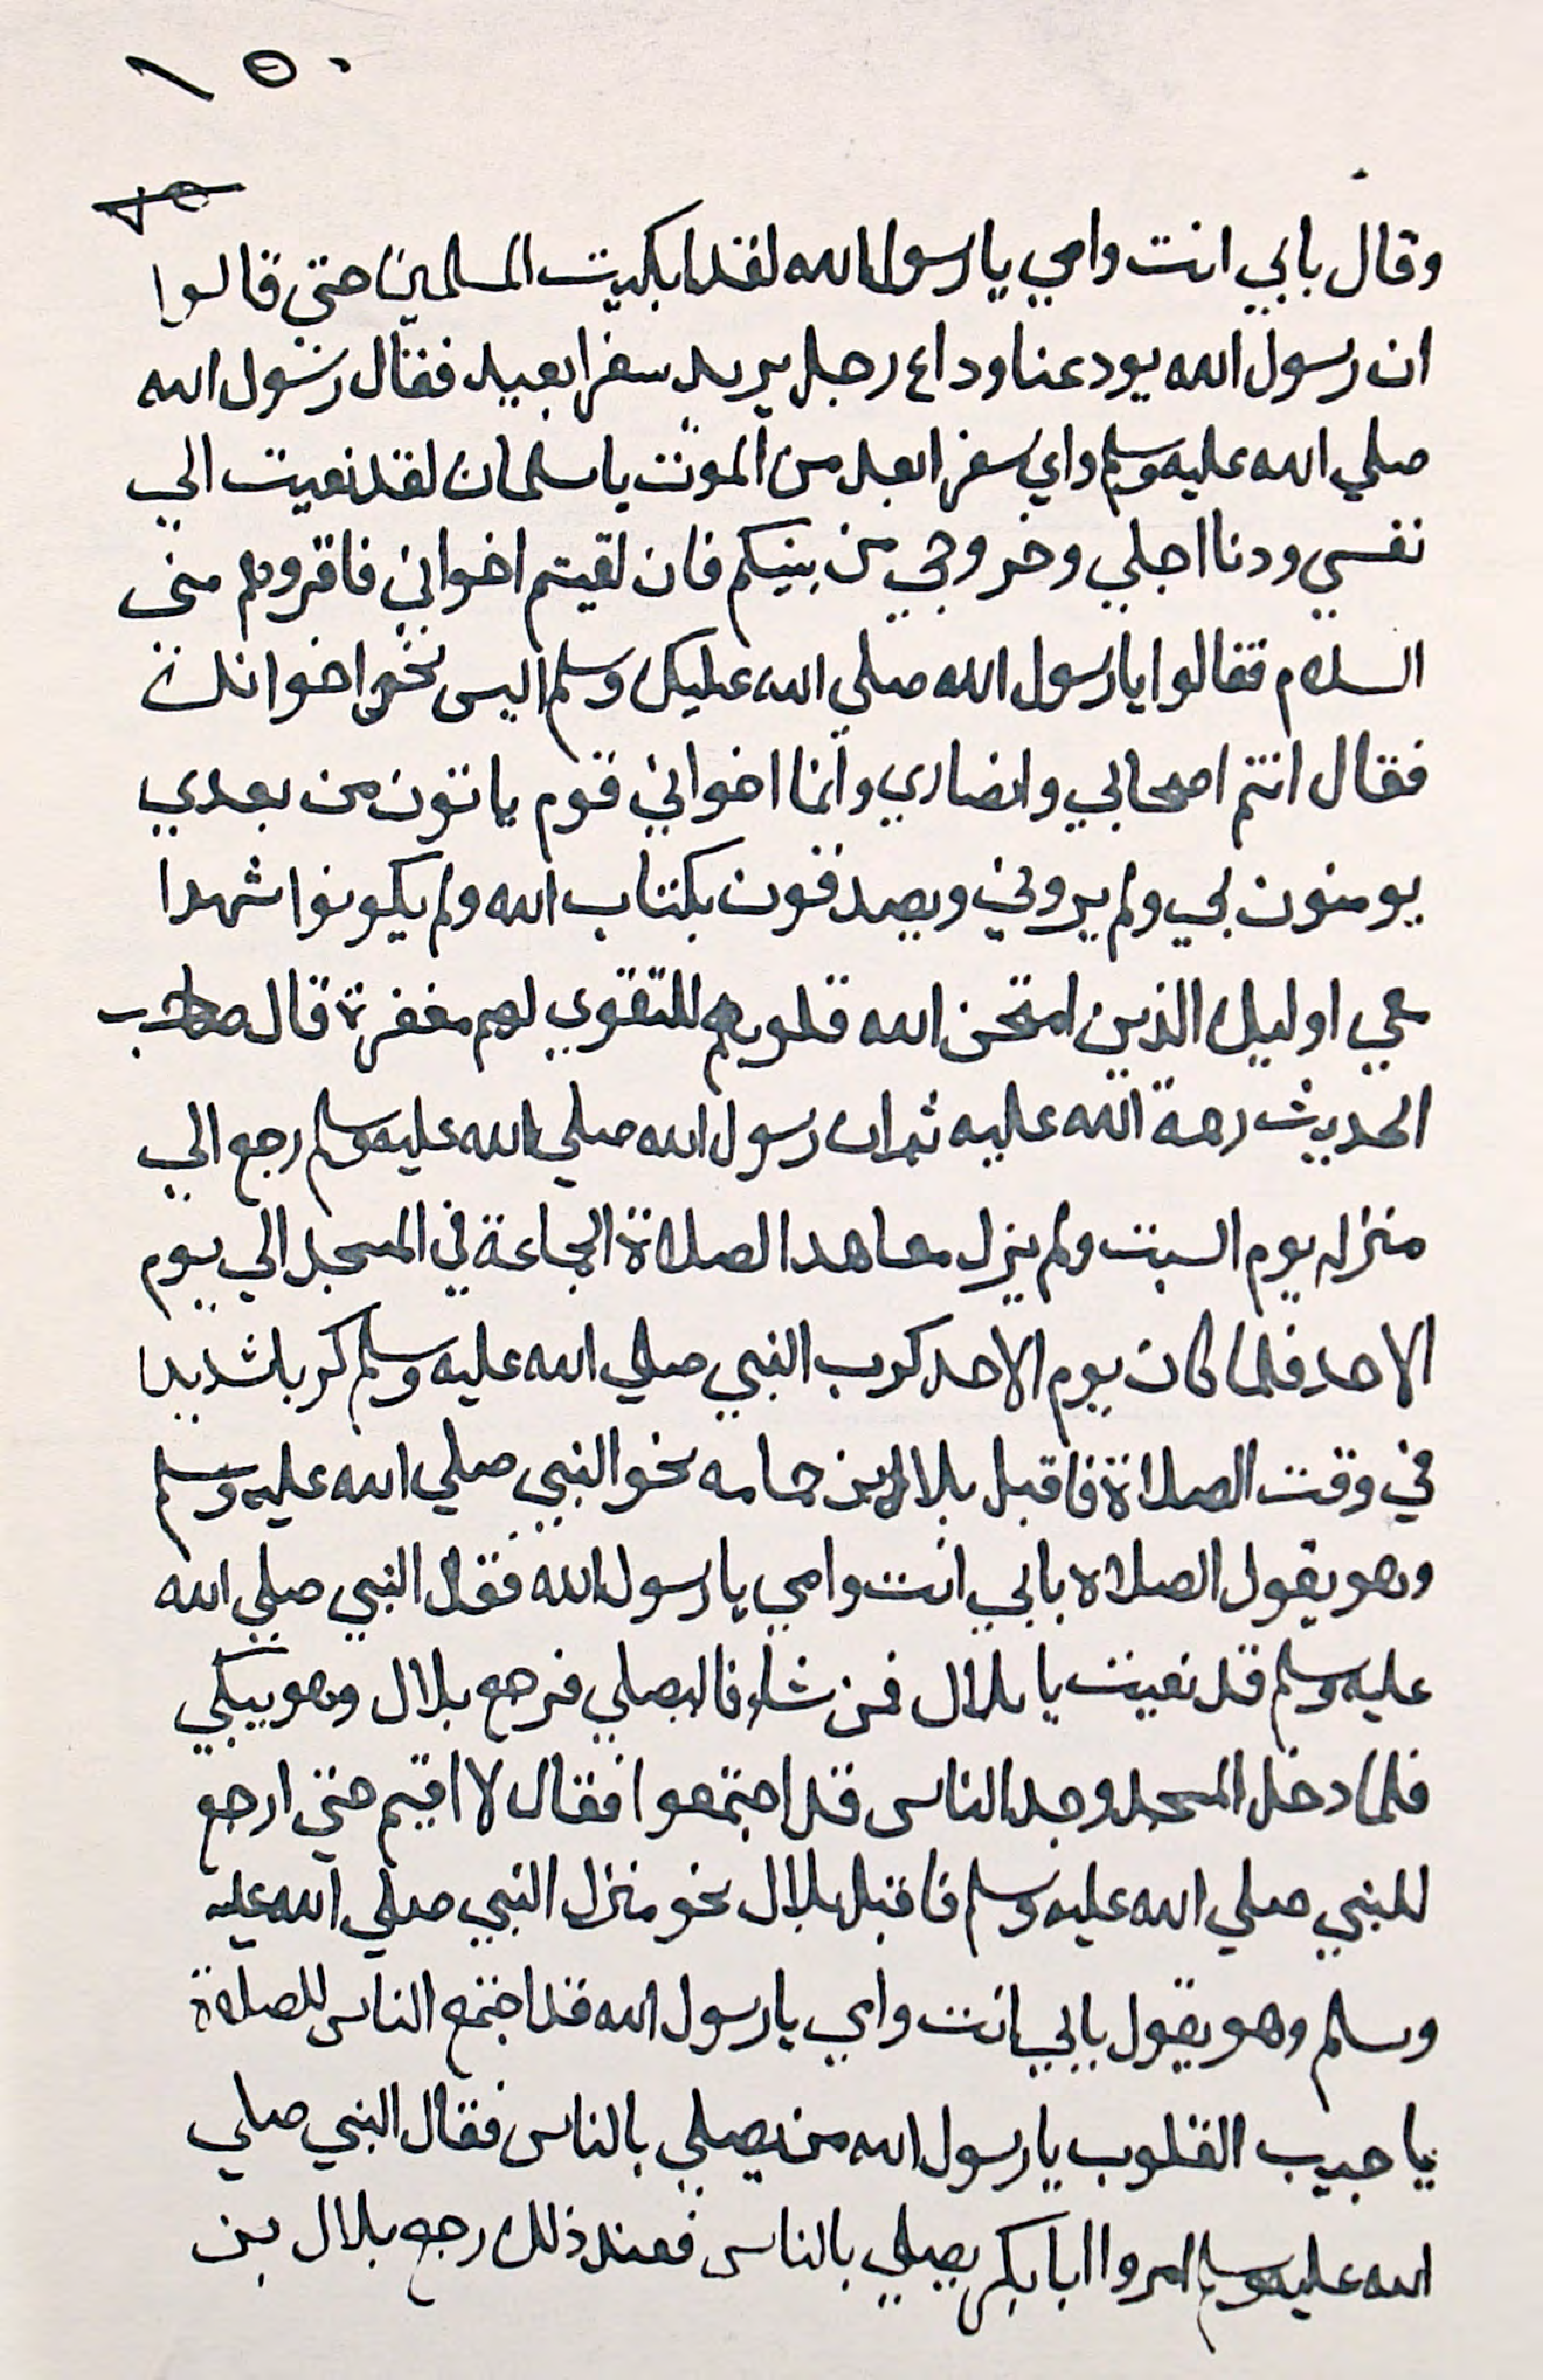 ١٥٠
وقال بابي انت وامي يا رسول الله لقد ابكيت المسلمين حتي قالوا
ان رسول الله يودعنا وداع رجل يريد سفرا بعيد فقال رسول الله
صلي الله عليه وسلم واي سفر ابعد من الموت يا سلمان لقد نعيت الي
نفسي ودنا اجلي وخروجي من بينكم فان لقيتم اخواني فاقروهم مني
السلام فقالوا يا رسول الله صلي الله عليك وسلم اليس نحن اخوانك
فقال انتم اصحابي وانصاري وانما اخواني قوم ياتون من بعدي
يومنون بي ولم يروني ويصدقون بكتاب الله ولم يكونوا شهدا
علي اوليك الذين امتحن الله قلوبهم للتقوي لهم مغفرة قال صاحب
الحديث رحمة الله عليه ثم ان رسول الله صلي الله عليه وسلم رجع الي
منزله يوم السبت ولم يزل معاهدا لصلاة الجماعة في المسجد الي يوم
الاحد فلما كان يوم الاحد كرب النبي صلي الله عليه وسلم كربا شديدا
في وقت الصلاة فاقبل بلال ابن حمامه نحو النبي صلي الله عليه وسلم
وهو يقول الصلاه بابي انت وامي يا رسول الله فقال النبي صلي الله
عليه وسلم قد نعيت يا بلال فمن شاء فاليصلي فرجع بلال وهو يبكي
فلما دخل المسجد وجد الناس قد اجتمعوا فقال لا اقيم حتي ارجع
للنبي صلي الله عليه وسلم فاقبل بلال نحو منزل النبي صلي الله عليه
وسلم وهو يقول بابي انت وامي يا رسول الله قد اجتمع الناس للصلاة
يا حبيب القلوب يا رسول الله من يصلي بالناس فقال النبي صلي
الله عليه وسلم امروا ابا بكر يصلي بالناس فعند ذلك رجع بلال بن